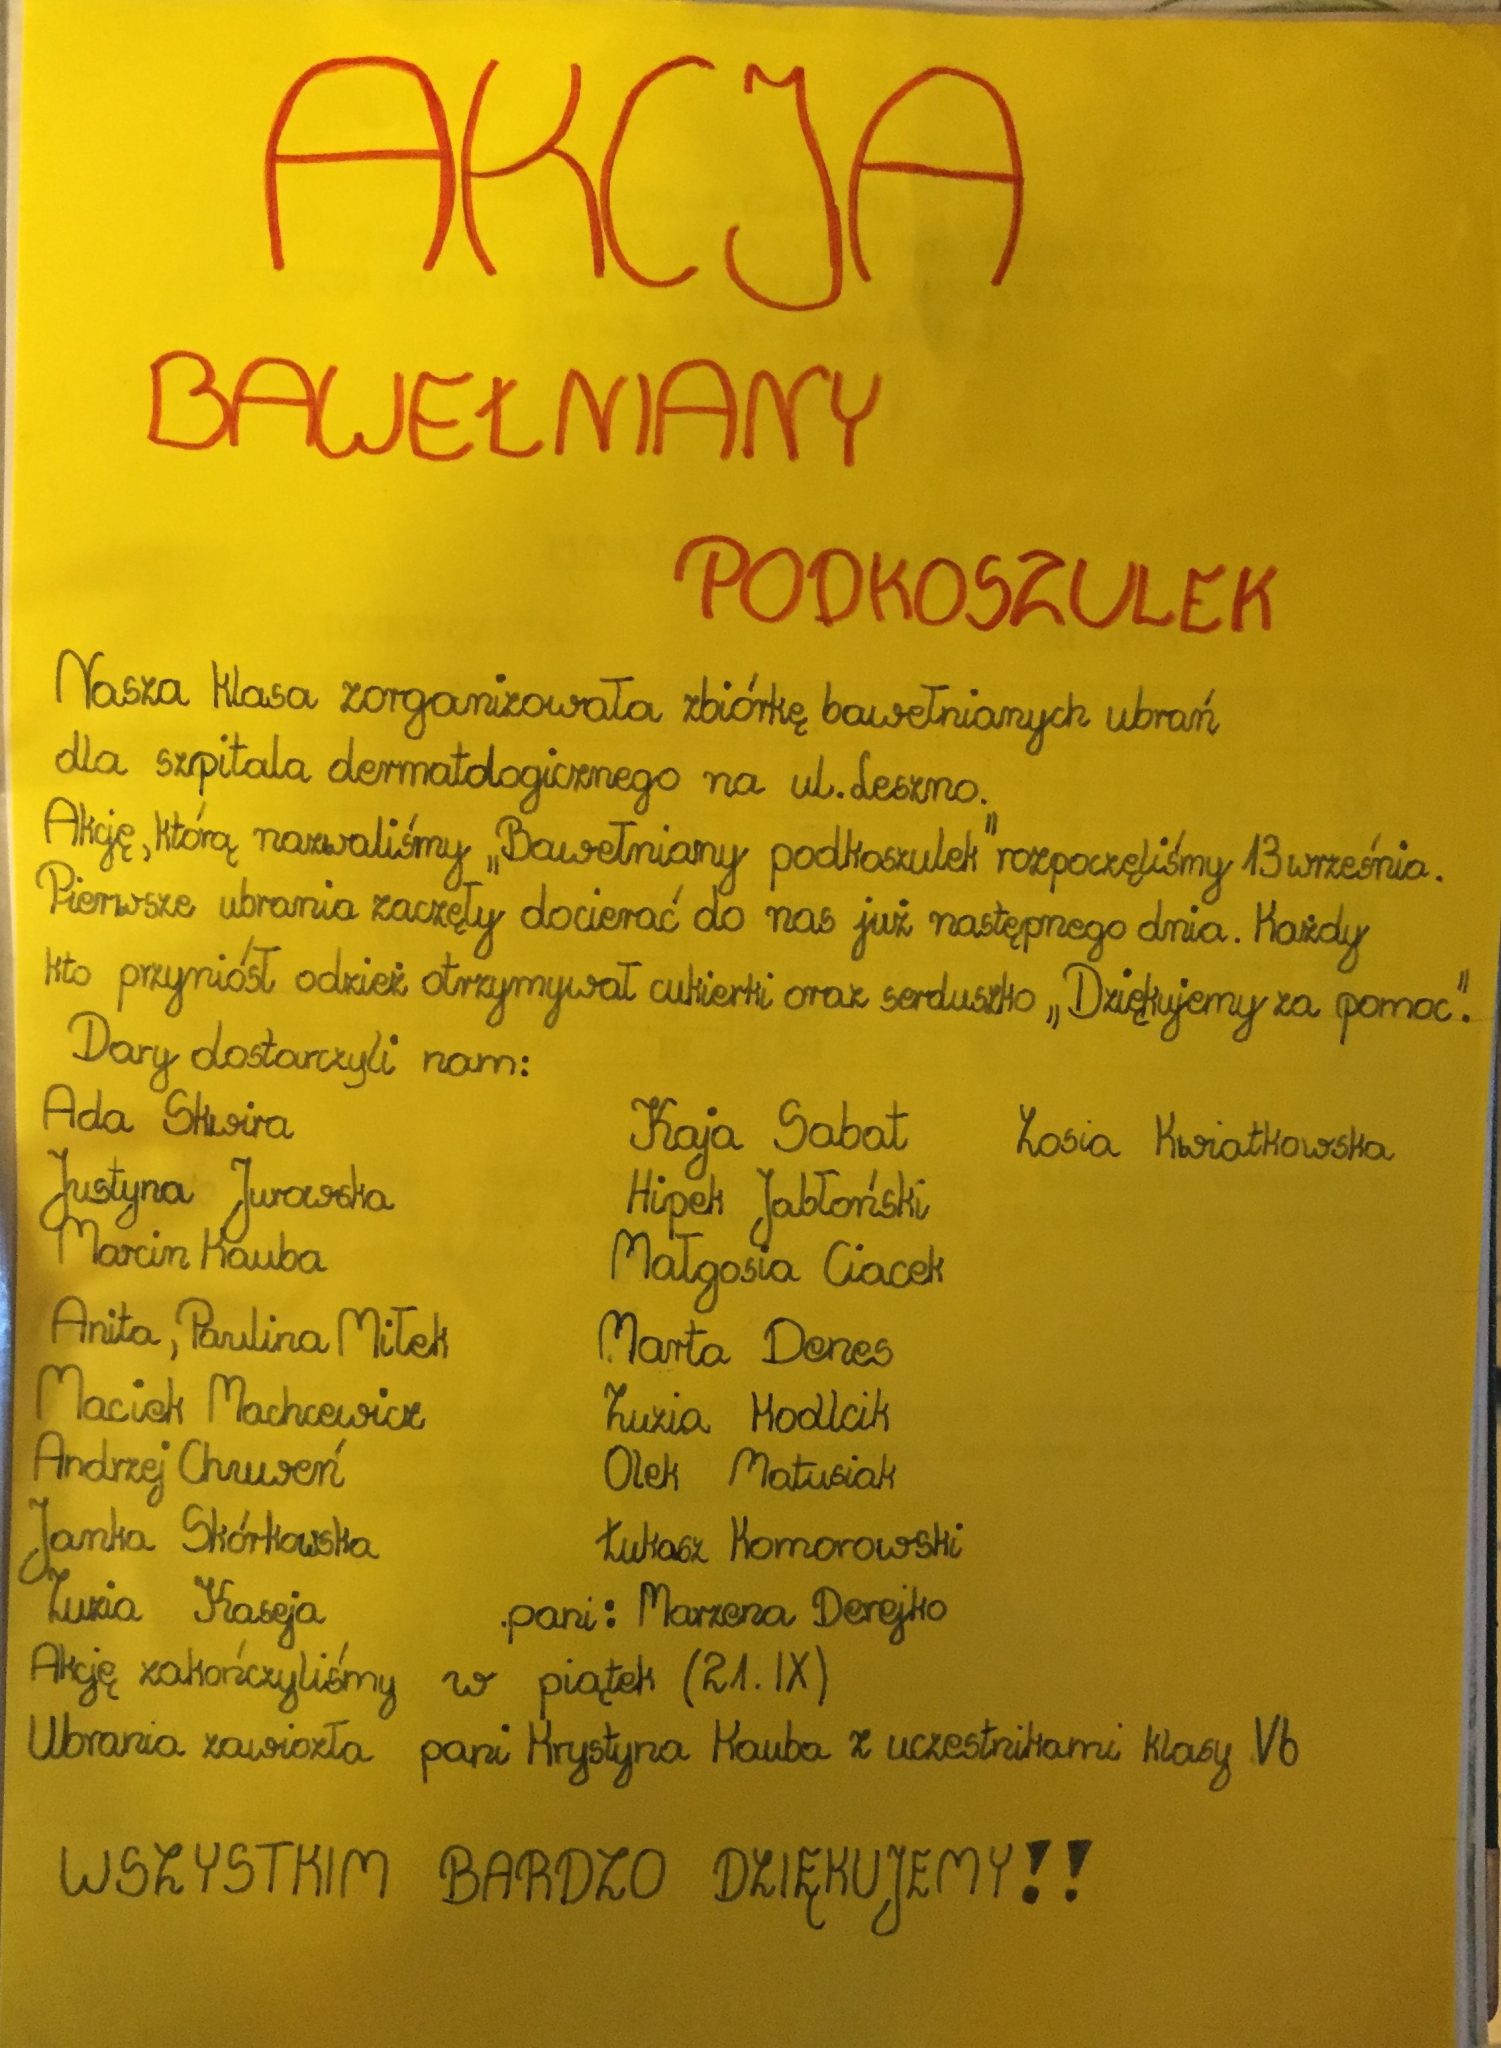 AKCJA
BAWEŁNIANY
PODKOSZULEK
Nasza klasa zorganizowała zbiórkę bawełnianych ubrań
dla szpitala dermatologicznego na ul. Leszno.
Akcję, którą nazwaliśmy „Bawełniany podkoszulek" rozpoczęliśmy 13 września.
Pierwsze ubrania zaczęły docierać do nas już następnego dnia. Każdy
kto przyniósł odzież otrzymywał cukierki oraz serduszko „Dziękujemy za pomoc".
Dary dostarczyli nam:
Ada Skwira Kaja Sabat Zosia Kwiatkowska
Justyna Jurowska Hipek Jabłoński
Marcin Kauba Małgosia Ciacek
Anita, Paulina Miłek Marta Denes
Maciek Machcewicz Zuzia Hodlcik
Andrzej Olek Matusiak
Janka Skórkowska Łukasz Komorowski
Zuzia Kaseja pani: Marzena Derejko
Akcję zakończyliśmy w piątek (21. IX)
Ubrania zawiozła pani Krystyna Kauba z uczestnikami klasy Vb
WSZYSTKIM BARDZO DZIĘKUJEMY!!